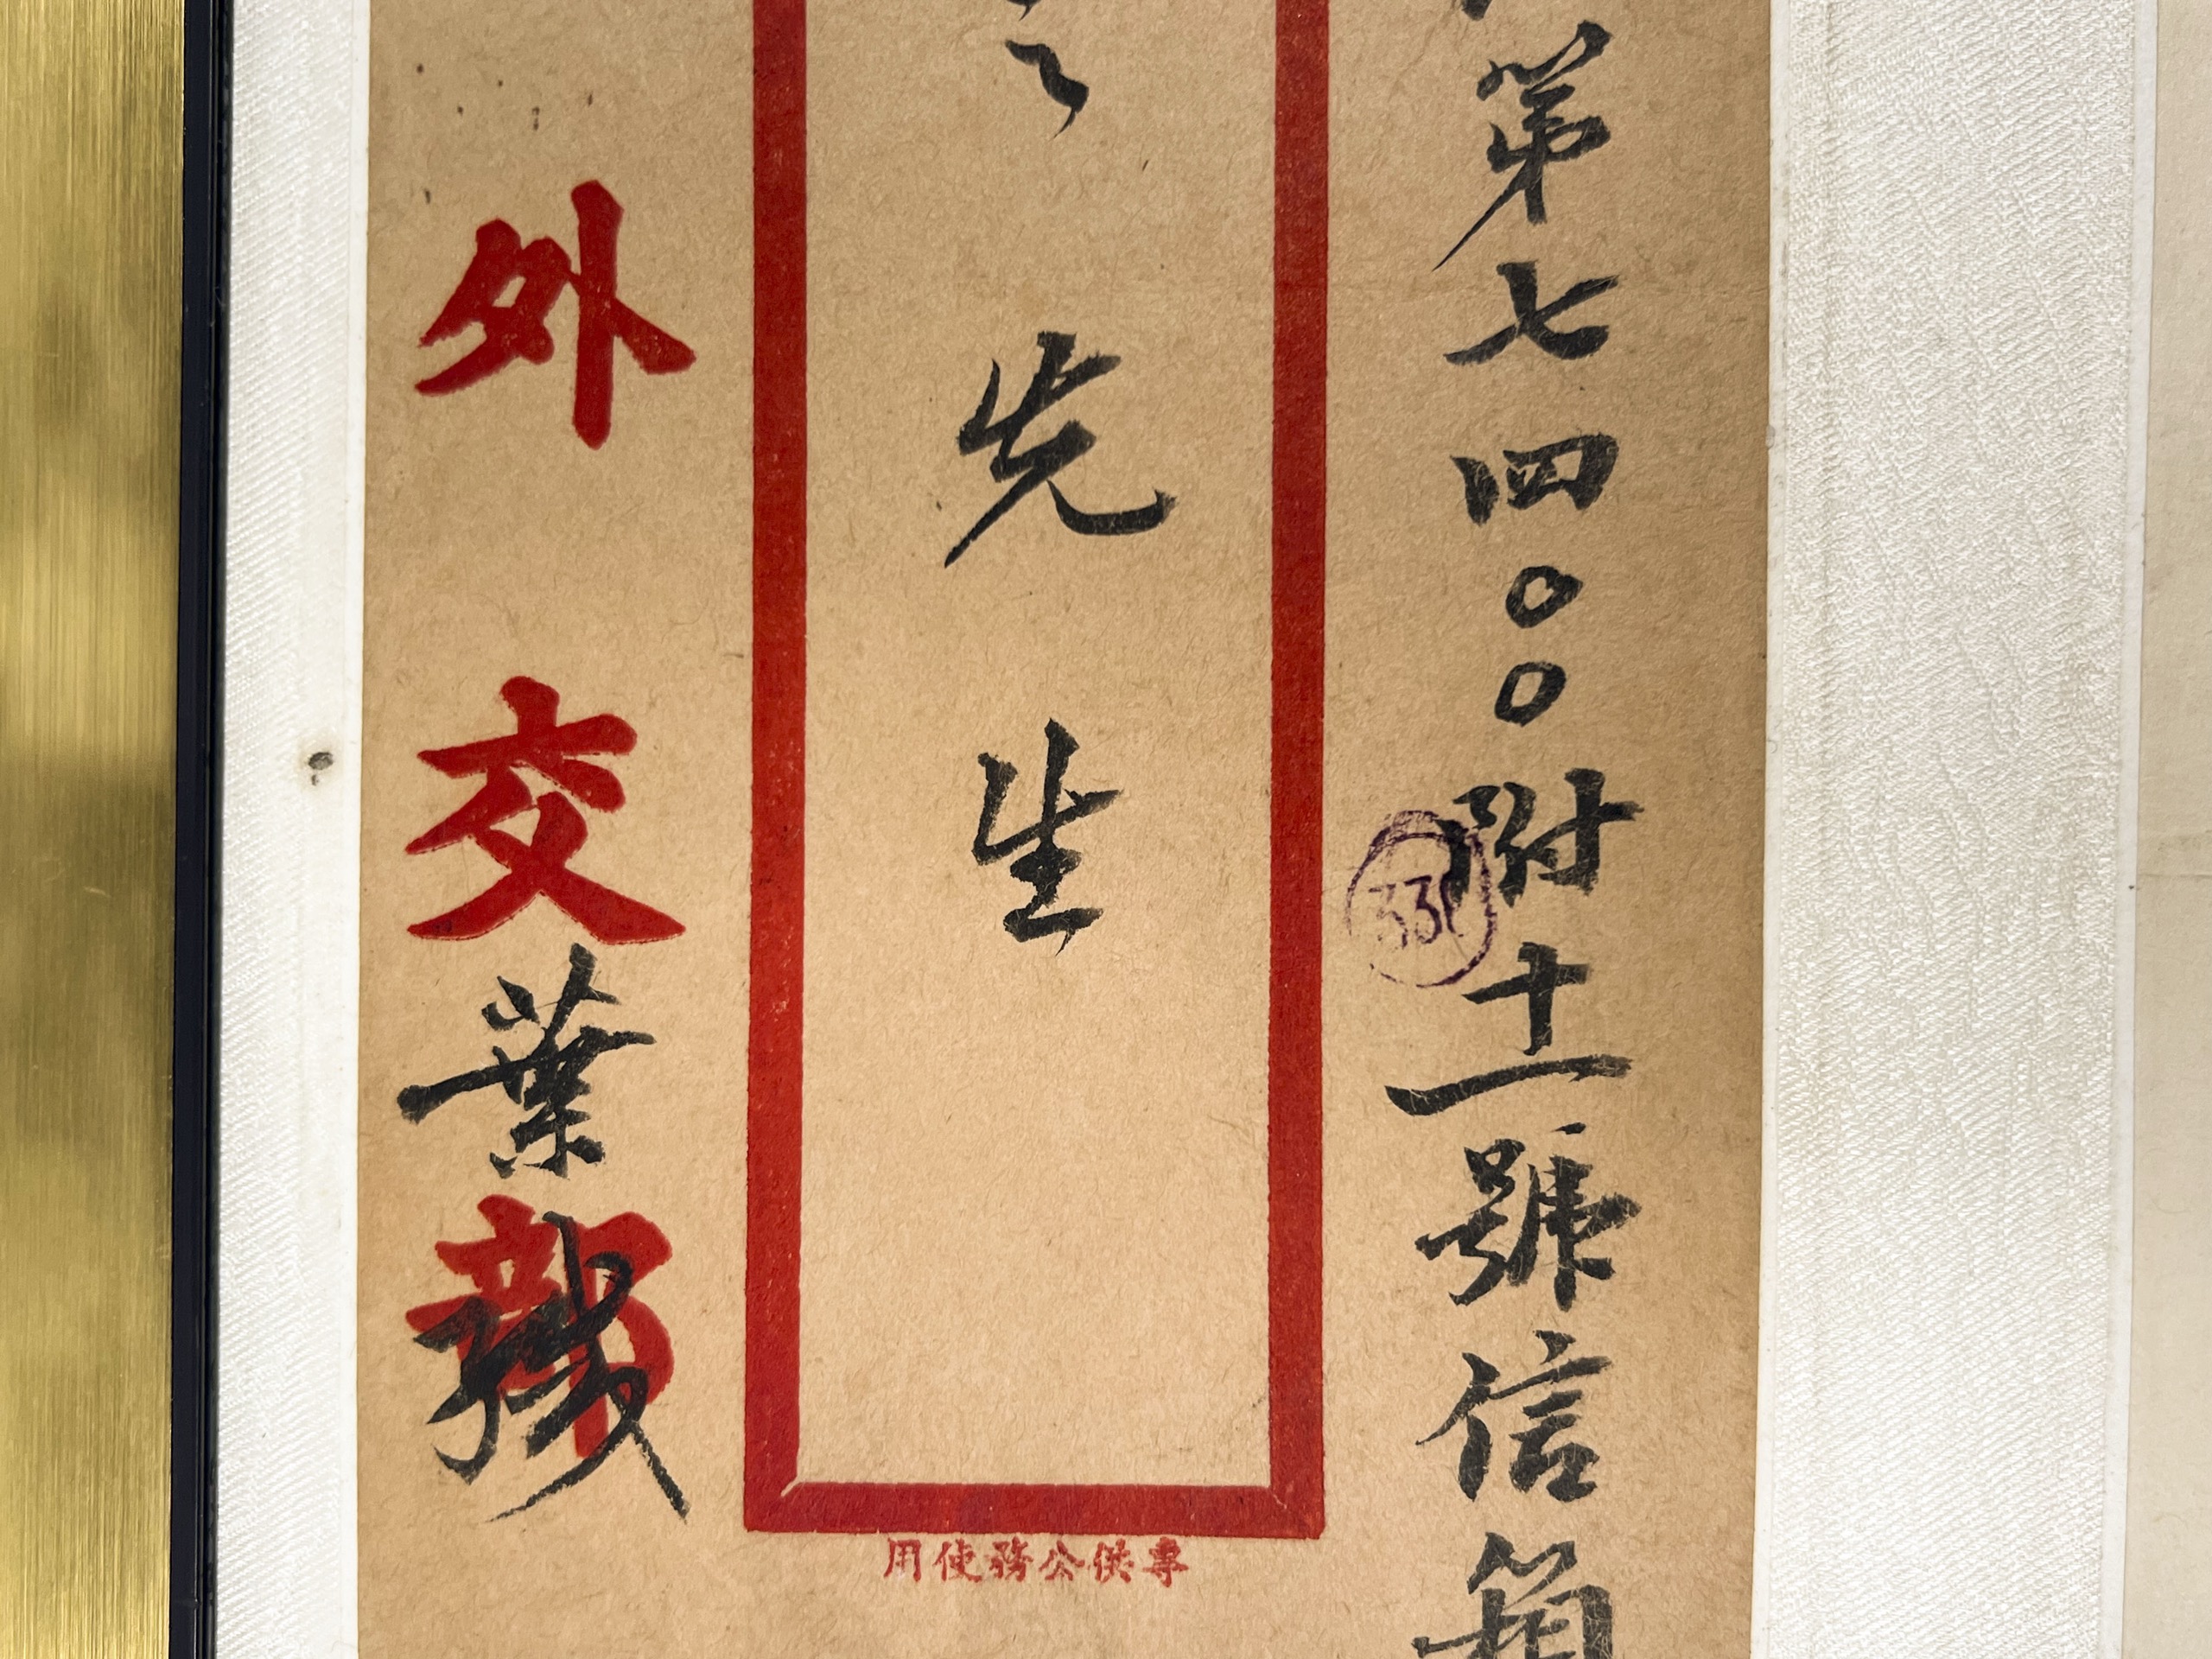 第七四〇〇附十一號信箱
先生
外交部
葉緘
專供公務使用